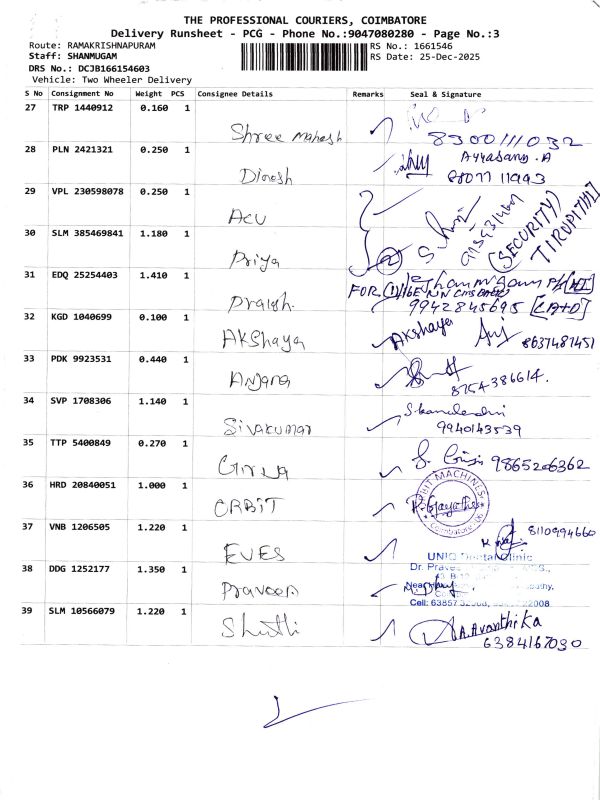 THE PROFESSIONAL COURIERS, COIMBATORE
Delivery Runsheet - PCG - Phone No.:9047080280 - Page No.:3
Route: RAMAKRISHNAPURAM RS No.: 1661546
Staff: SHANMUGAM RS Date: 25-Dec-2025
DRS No.: DCJB166154603
Vehicle: Two Wheeler Delivery
S No Consignment No Weight PCS Consignee Details Remarks Seal & Signature
27 TRP 1440912 0.160 1
Shree Mahesh 8300111032
28 PLN 2421321 0.250 1 Ayyasamy.A
Dinesh
29 VPL 230598078 0.250 1
Acu (SECURITY)
30 SLM 385469841 1.180 1 TIRUPITHI
Priya 2
31 EDQ 25254403 1.410 1
FOR
9942845695
32 KGD 1040699 0.100 1
AKShaya Akshaya 8637487451
33 PDK 9923531 0.440 1
Anjana 8754386614.
34 SVP 1708306 1.140 1
Sivakumar 9940143539
35 TTP 5400849 0.270 1
Girija 9865206362
36 HRD 20840051 1.000 1 MACHINES
ORBIT Coimbatore
37 VNB 1206505 1.220 1 8110994660
EVES UNIQ Dental Clinic
38 DDG 1252177 1.350 1 Dr.
Praveen
Cell:
39 SLM 10566079 1.220 1
Shruthi A.Avanthika
6384167030